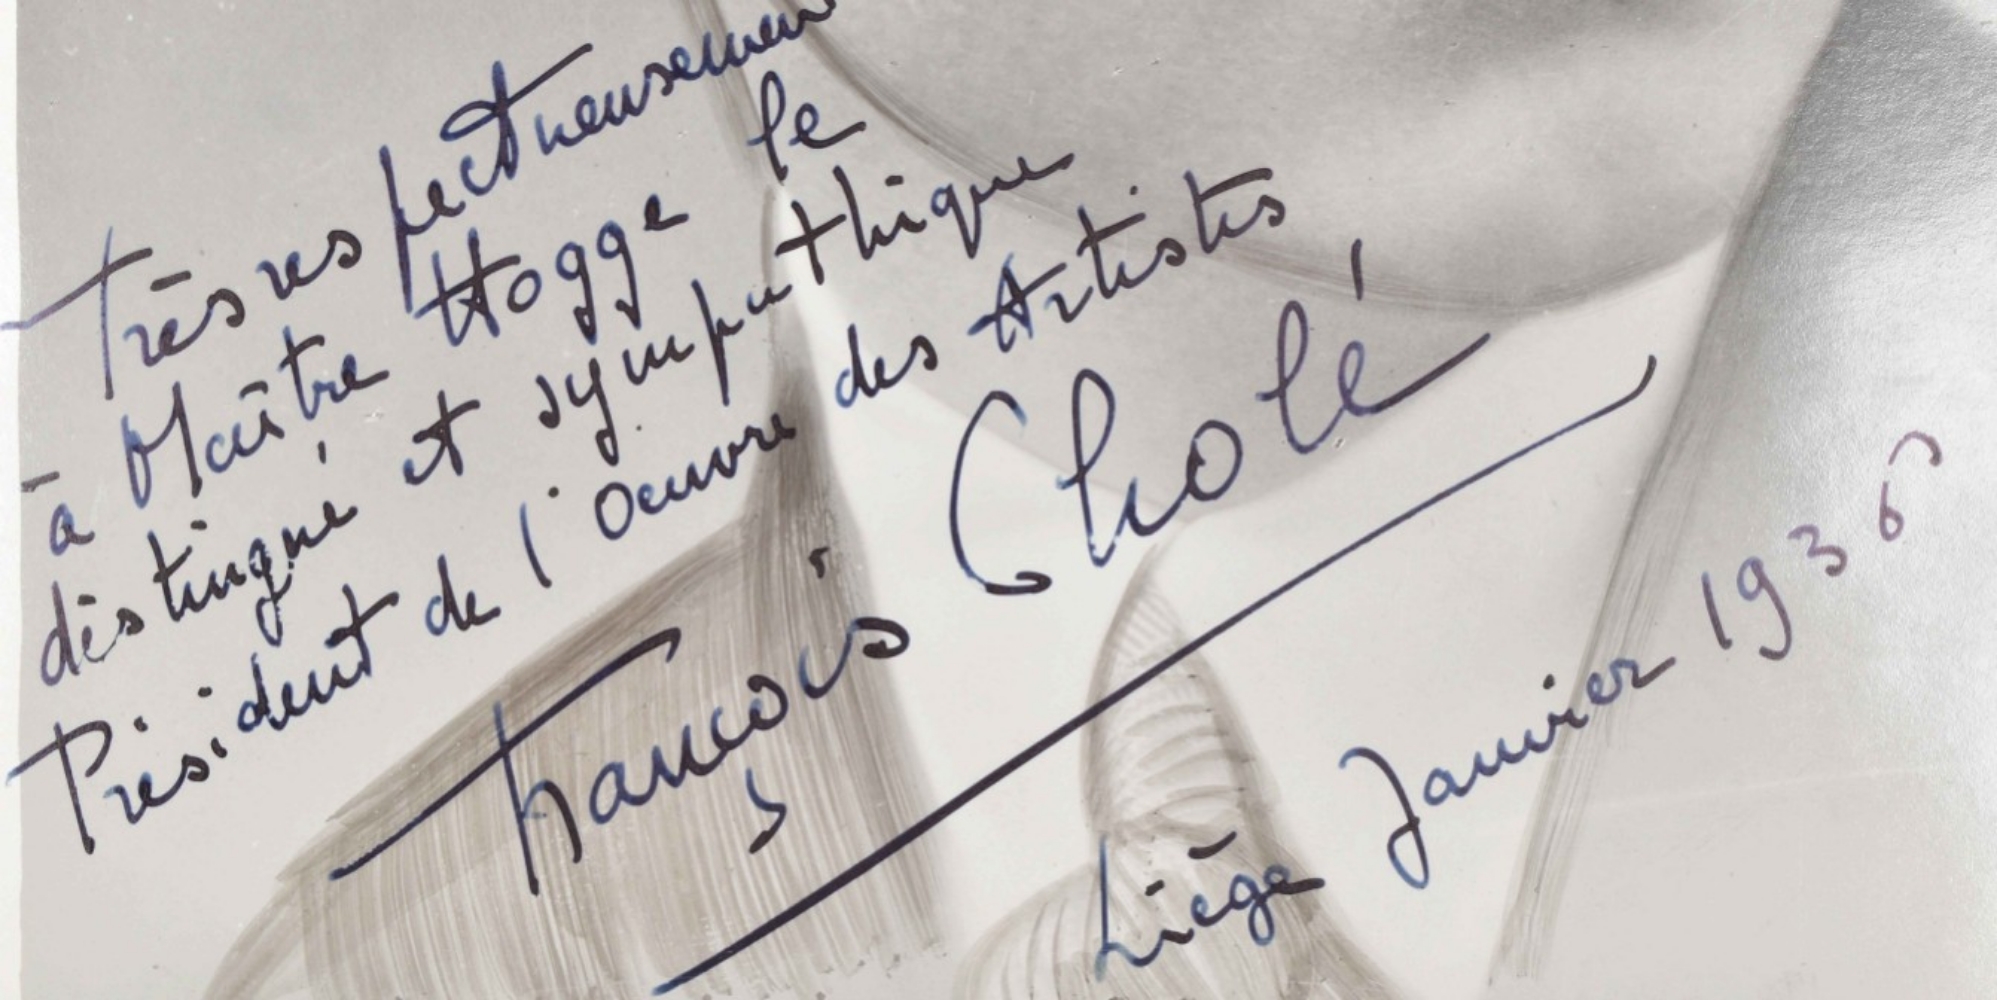 Très respectueusement
à Maître Hogge le
distingué et sympathique
Président de l'Oeuvre des Artistes
François Cholé
Liège Janvier 1936